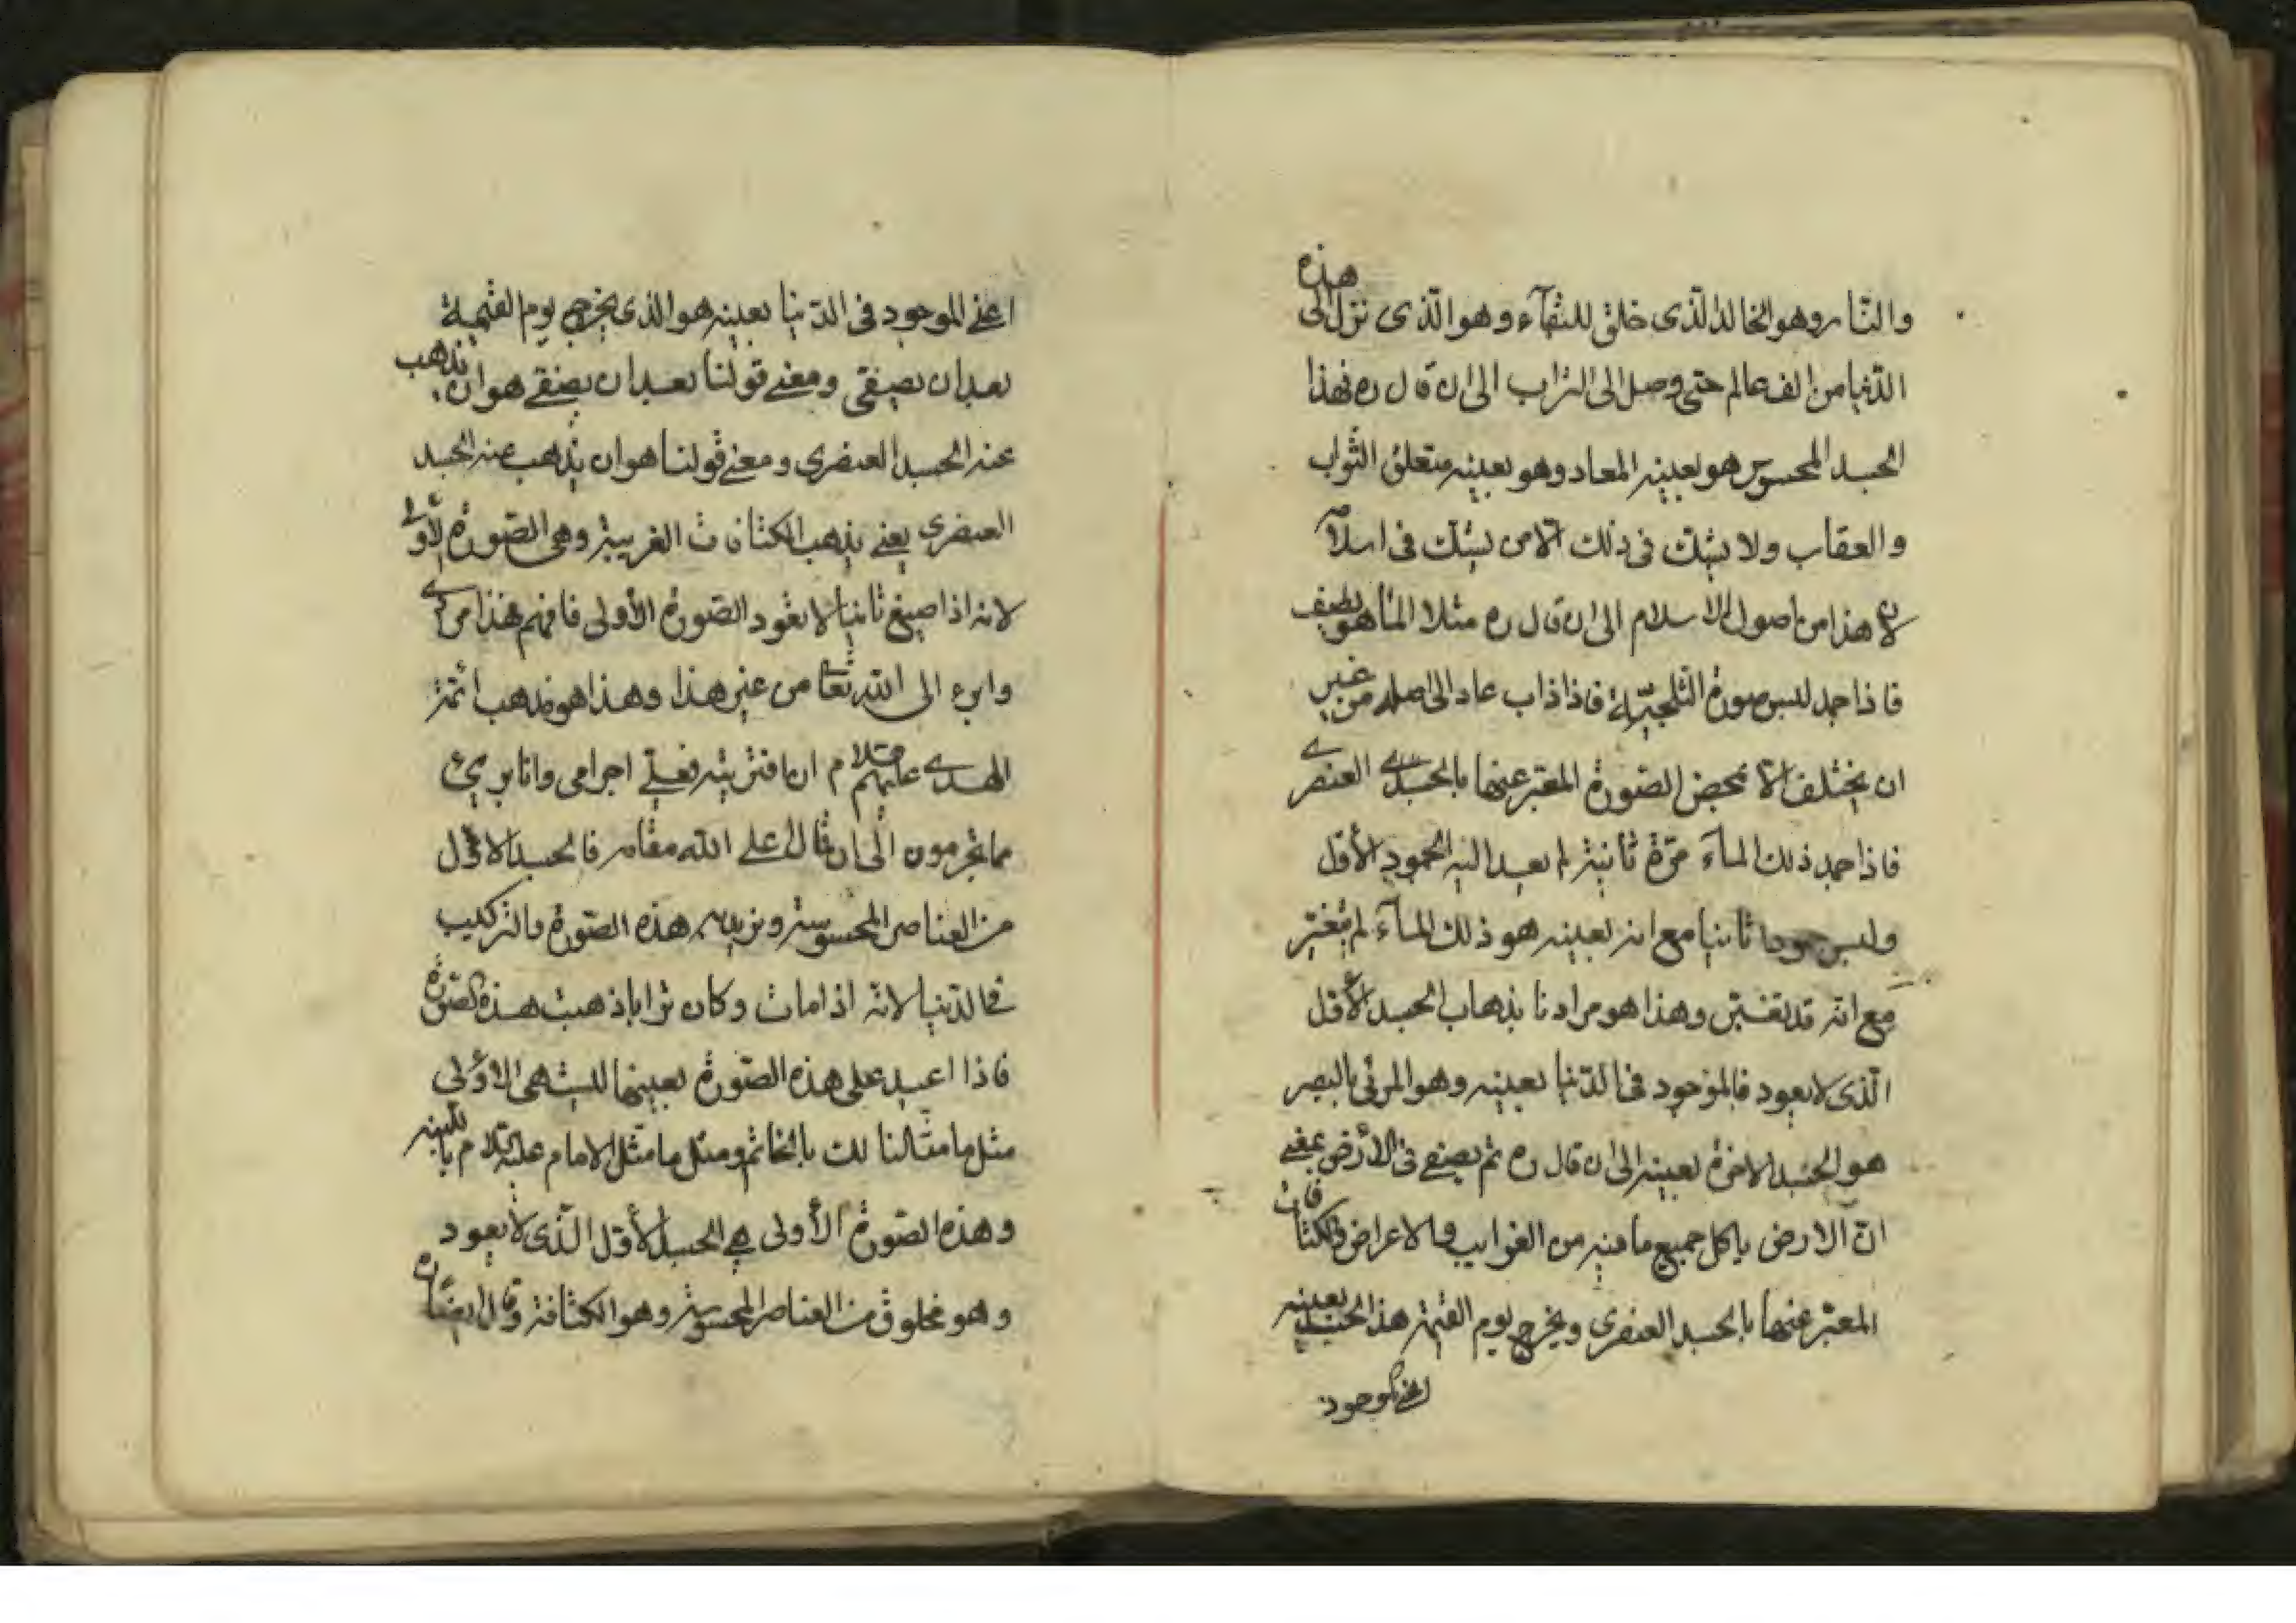 والنار وهو الخالد الذى خلق للبقآء وهو الذى نزل الى هذه
الدنيا من الف عالم حتى وصل الى التراب الى ان قال ره فهذا
الجسد المحسوس هو بعينه المعاد وهو بعينه متعلق الثواب
والعقاب ولا يشك فى ذلك الا من يشك فى اسلامه
لان هذا من اصول الاسلام الى ان قال ره مثلا المآء هو لطيف
فاذا جمد لبس صورة الثلجيّة فاذا ذاب عاد الى اصله من غير
ان يختلف الا محض الصورة المعبر عنها بالجسد العنصرے
فاذا جمد ذلك المآء مرّة ثانية لم يعد اليه الجمود الأول
ولبس جمودا ثانيا مع انه بعينه هو ذلك المآء لم يتغيّر
مع انّه قد تغيّر وهذا هو مرادنا بذهاب الجسد الأول
الّذى لا يعود فالموجود فى الدّنيا بعينه وهو المرئى بالبصر
هو الجسد الاخرة بعينه الى ان قال ره ثم يصفى فى الأرض بمعنے
انّ الارض ياكل جميع ما فيه من الغرايب والاعراض والكثافات
المعبّر عنها بالجسد العنصرى ويخرج يوم القيمة هذا الجسد بعينه
اعنے الموجود
اعنے الموجود فى الدّنيا بعينه هو الذى يخرج يوم القيمة
بعد ان يصفى ومعنے قولنا بعد ان يصفے هو ان يذهب
عنه الجسد العنصرى ومعنے قولنا هو ان يذهب عنه الجسد
العنصرى يعنے يذهب الكثافات الغريبة وهى الصّورة الأولى
لانه اذا صيغ ثانيا لا يعود الصّورة الأولى فافهم هذا مرادے
وابرء الى الله تعا من غير هذا وهذا هو مذهب ائمة
الهدے عليهم السلام ان افتريته فعلےّ اجرامى وانا برىئ
مما تجرمون الى ان قال اعلى الله مقامه فالجسد الاوّل
من العناصر المحسوسة ونريد به هذه الصّورة والتركيب
فى الدّنيا لانّه اذا مات وكان ترابا ذهبت هذه الصّورة
فاذا اعيد على هذه الصّورة بعينها ليست هى الاوّلى
مثل ما مثّلنا لك بالخاتم ومثل ما مثّل الامام عليه السلام باللبنه
وهذه الصّورة الأولى هے الجسد الأوّل الّذى لا يعود
وهو مخلوق من العناصر المحسوسة وهو الكثافة وقال ايضًا ره